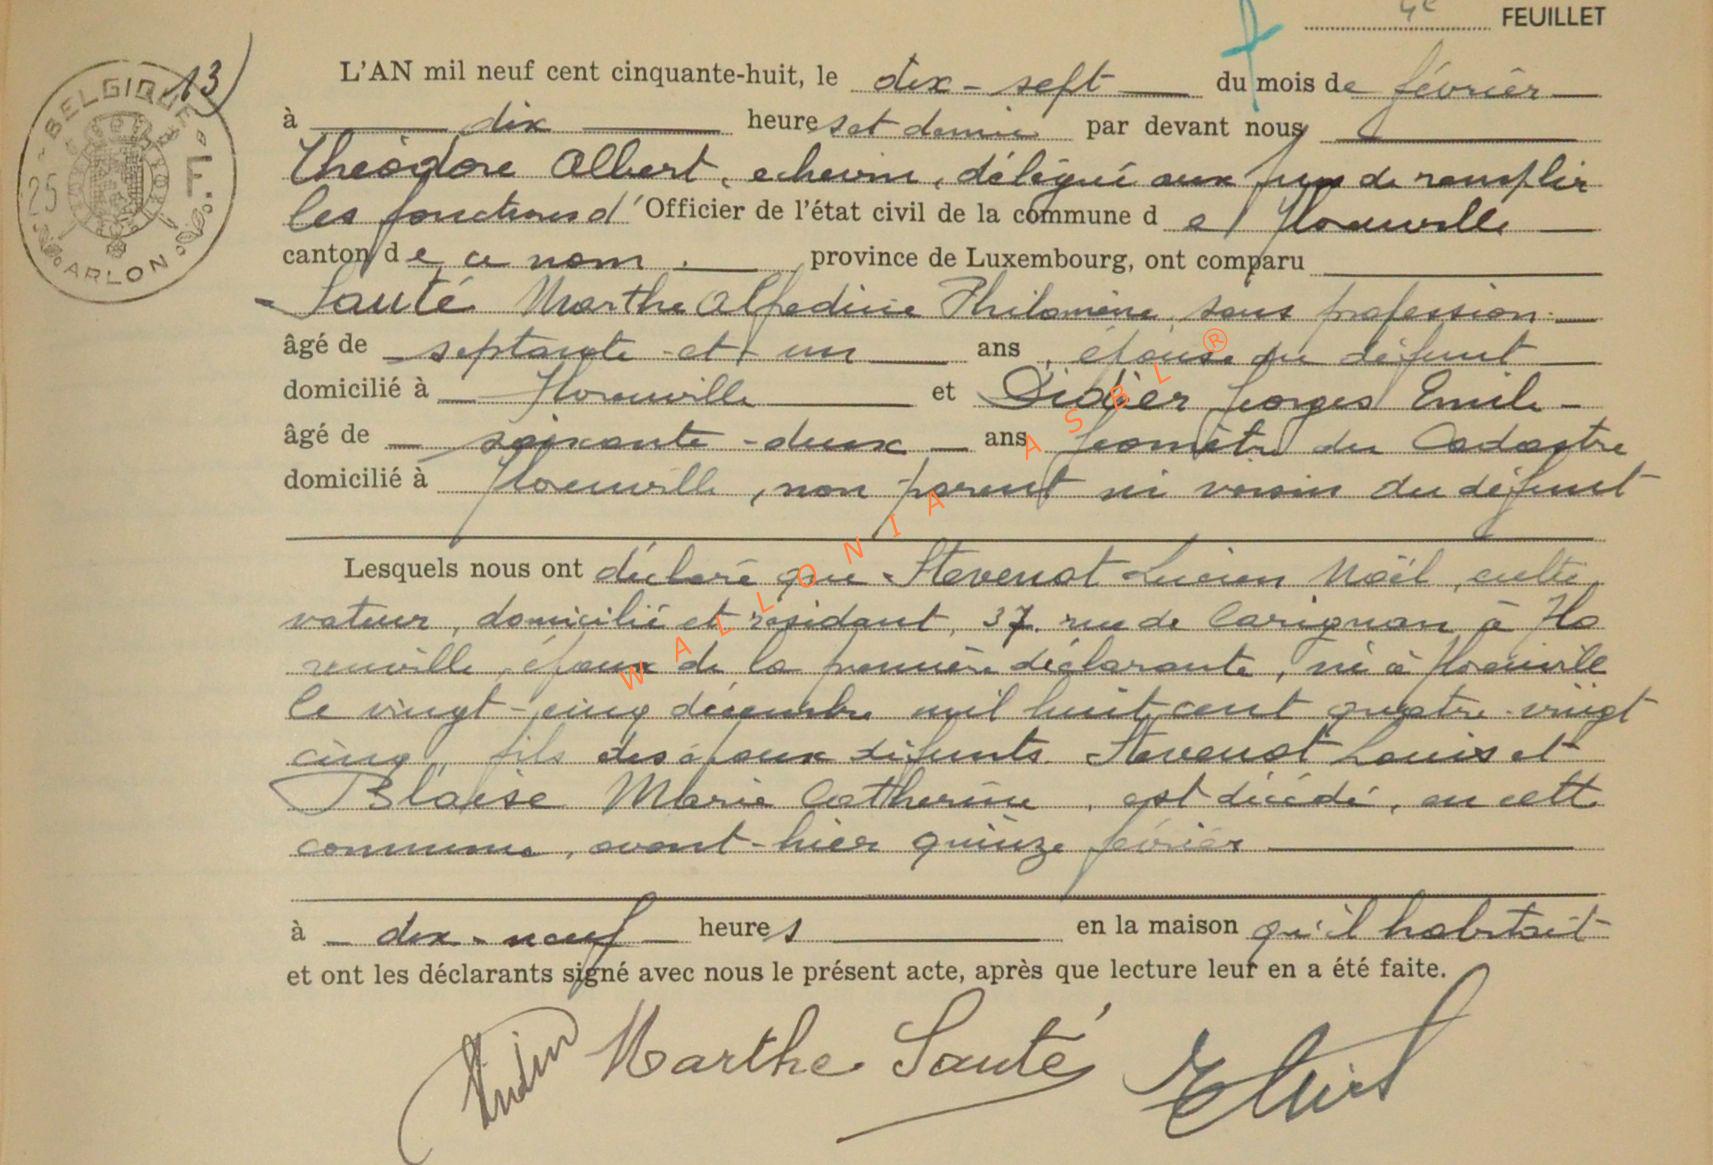 4e FEUILLET
13
BELGIQUE
25 F.
ARLON
L'AN mil neuf cent cinquante-huit, le dix-sept du mois de février
à dix heures et demie par devant nous
Théodore Albert, échevin, délégué aux fins de remplir
les fonctions d'Officier de l'état civil de la commune de Florenville
canton de ce nom. province de Luxembourg, ont comparu
Sauté Marthe Alfedine Philomène, sans profession
âgé de septante-et-un ans, épouse du défunt
domicilié à Florenville et Didier Georges Emile
âgé de soixante-deux ans géomètre du Cadastre
domicilié à Florenville, non parent ni voisin du défunt
Lesquels nous ont déclaré que Stevenot Lucien Noël, culti
vateur, domicilié et résidant, 37, rue de Carignan à Flo
renville, époux de la première déclarante, né à Florenville
le vingt-cinq décembre mil huit cent quatre-vingt
cinq, fils des époux défunts Stevenot Louis et
Blaise Marie Catherine, est décédé, en cette
commune, avant-hier quinze février
à dix-neuf heures en la maison qu'il habitait
et ont les déclarants signé avec nous le présent acte, après que lecture leur en a été faite.
Marthe Sauté
WALLONIA ASBL ®